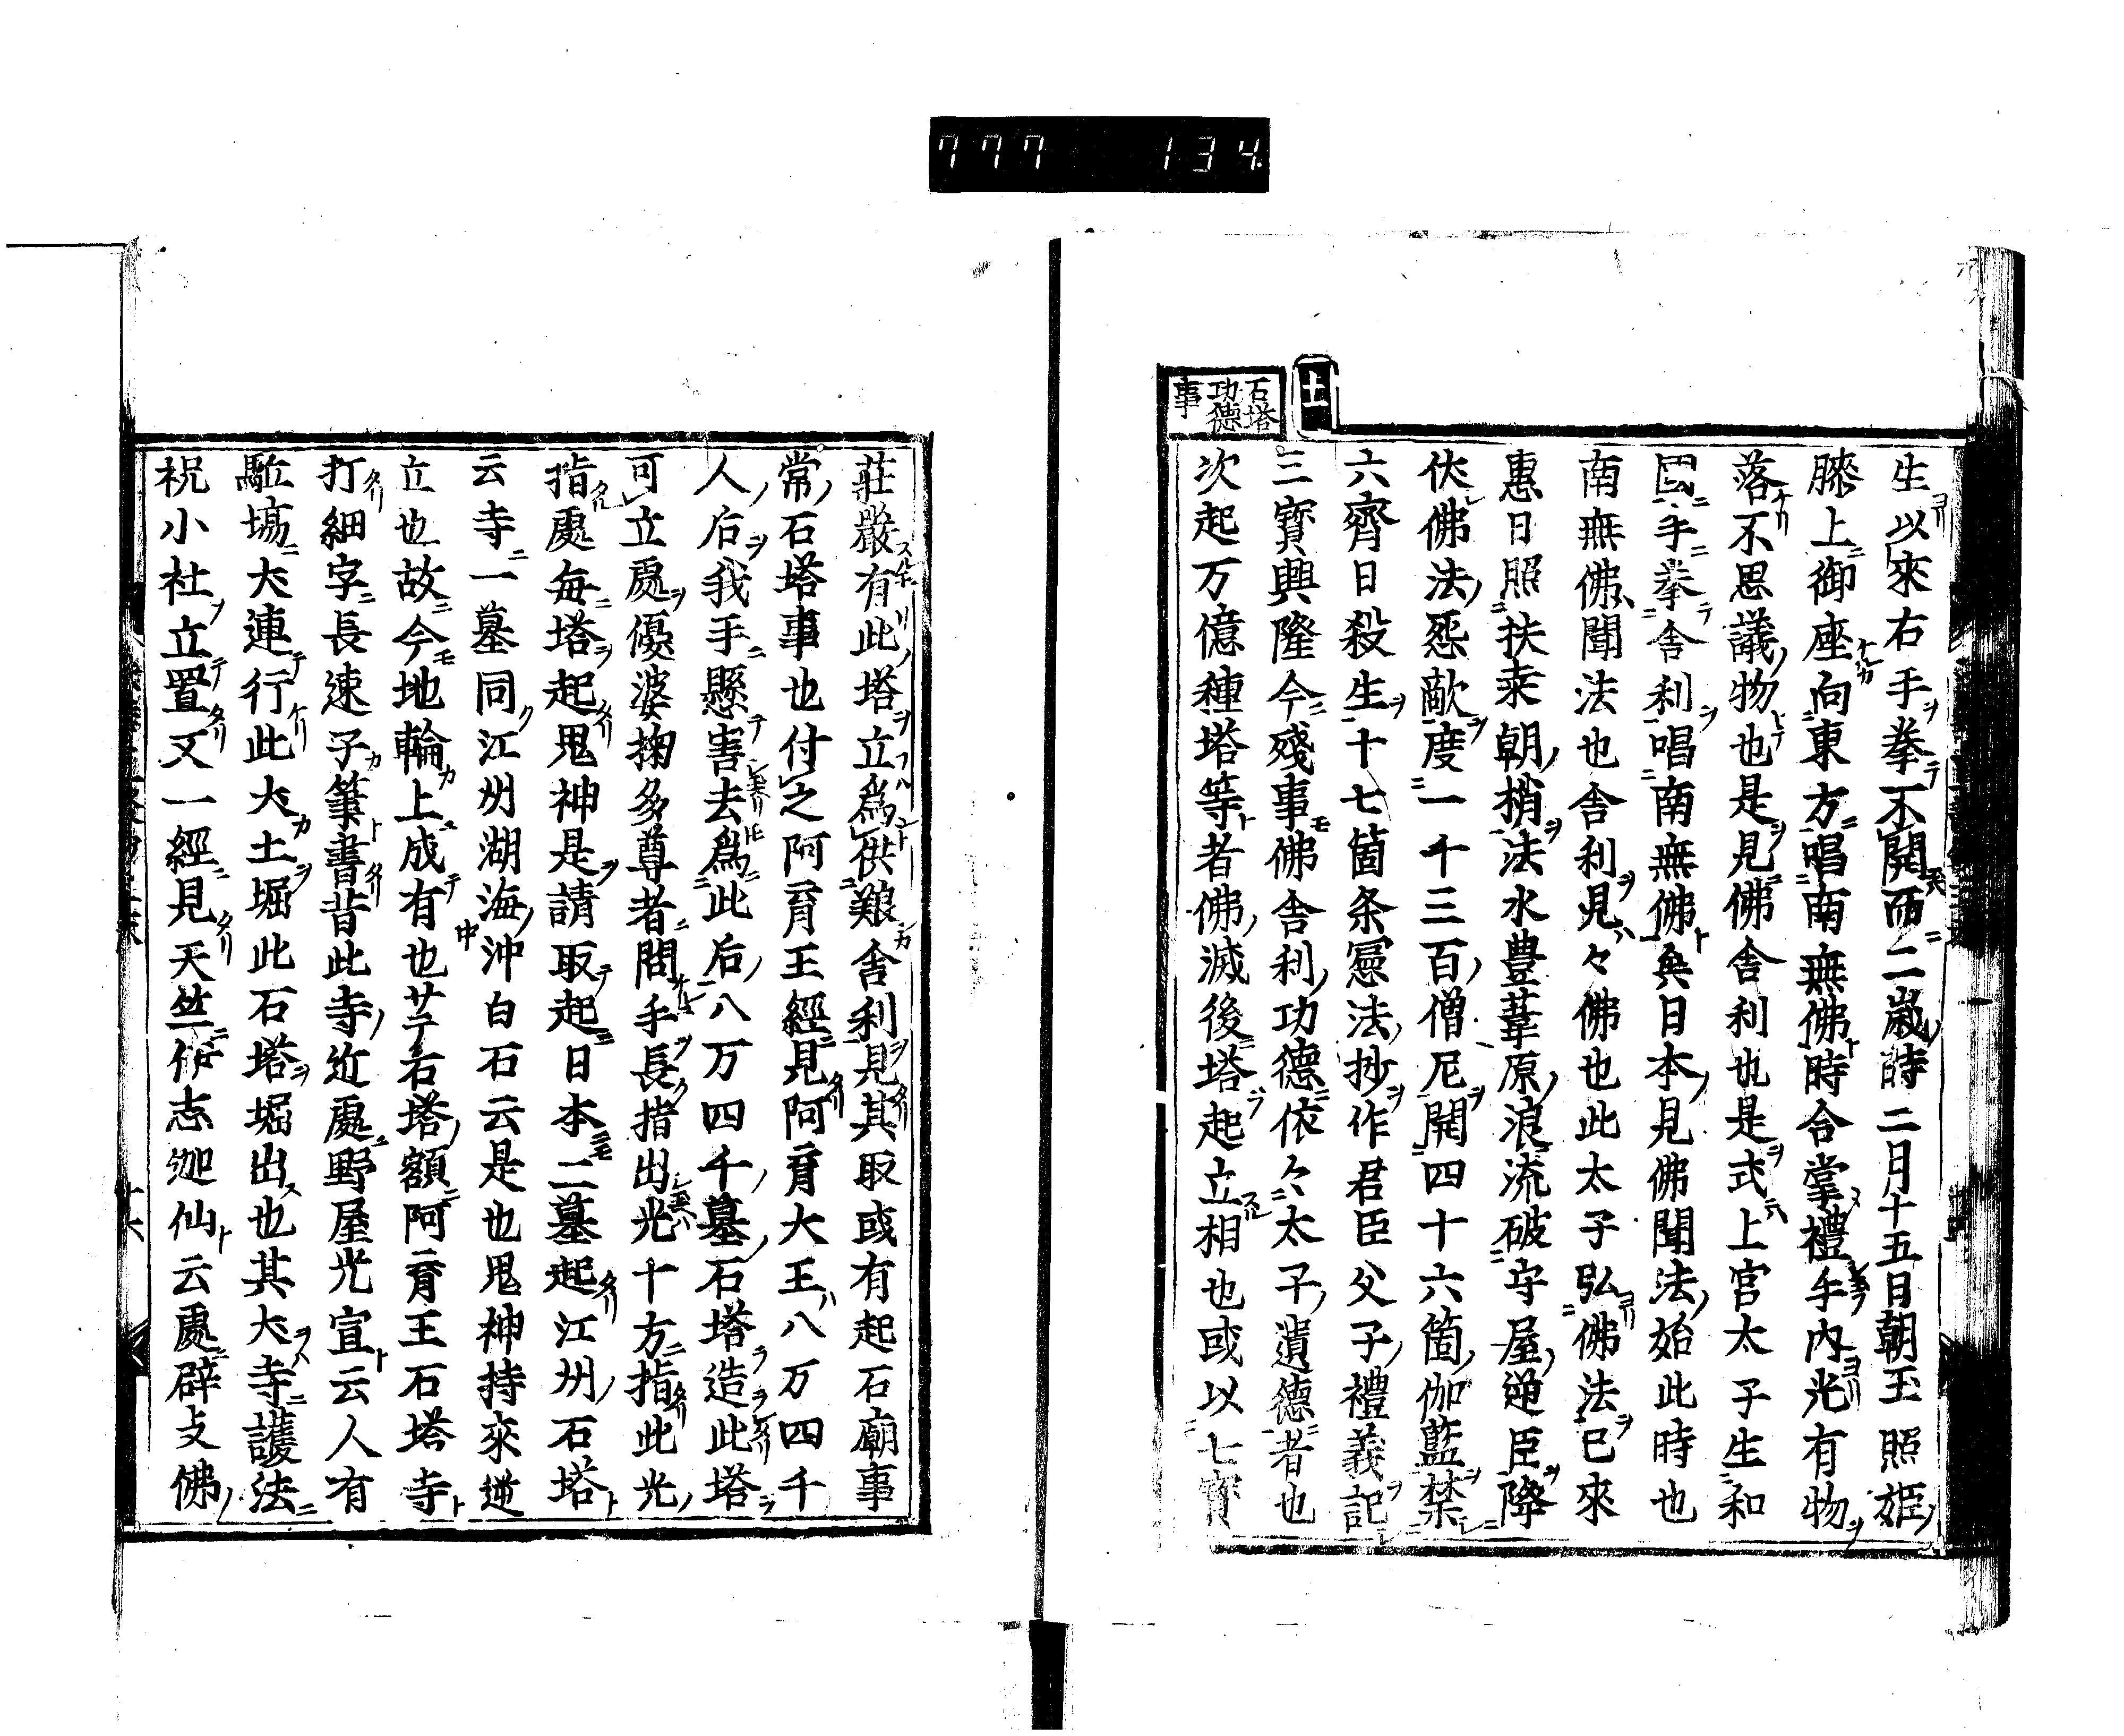 777 134
十一
石塔
功德
事
生以來右手拳不開而二歲時二月十五日朝玉照姬
膝上御座向東方唱南無佛時合掌禮手內光有物
落不思議物也是見佛舍利也是式上宮太子生和
國手拳舍利唱南無佛矣日本見佛聞法始此時也
南無佛聞法也舍利見々佛也此太子弘佛法已來
惠日照扶桒朝梢法水豊葦原浪流破守屋逆臣降
伏佛法怨敵度一千三百僧尼開四十六箇伽藍禁
六齊日殺生十七箇条憲法抄作君臣父子禮義記
三寳興隆今殘事佛舍利功德依々太子遺德者也
次起万億種塔等者佛滅後塔起立相也或以七寳
莊嚴有此塔立爲供艱舍利見其取或有起石廟事
常石塔事也付之阿育王經見阿育大王八万四千
人后我手懸害去爲此后八万四千墓石塔造此塔
可立處優婆掬多尊者問手長指出光十方指此光
指處每塔起鬼神是請取起日本二墓起江州石塔
云寺一墓同江州湖海沖白石云是也鬼神持來逆
立也故今地輪上成有也サテ石塔額阿育王石塔寺
打細字長速子筆書昔此寺近處野屋光宣云人有
駈塲大連行此大土堀此石塔堀出也其大寺護法
祝小社立置又一經見天竺作志迦仙云處辟支佛
十六